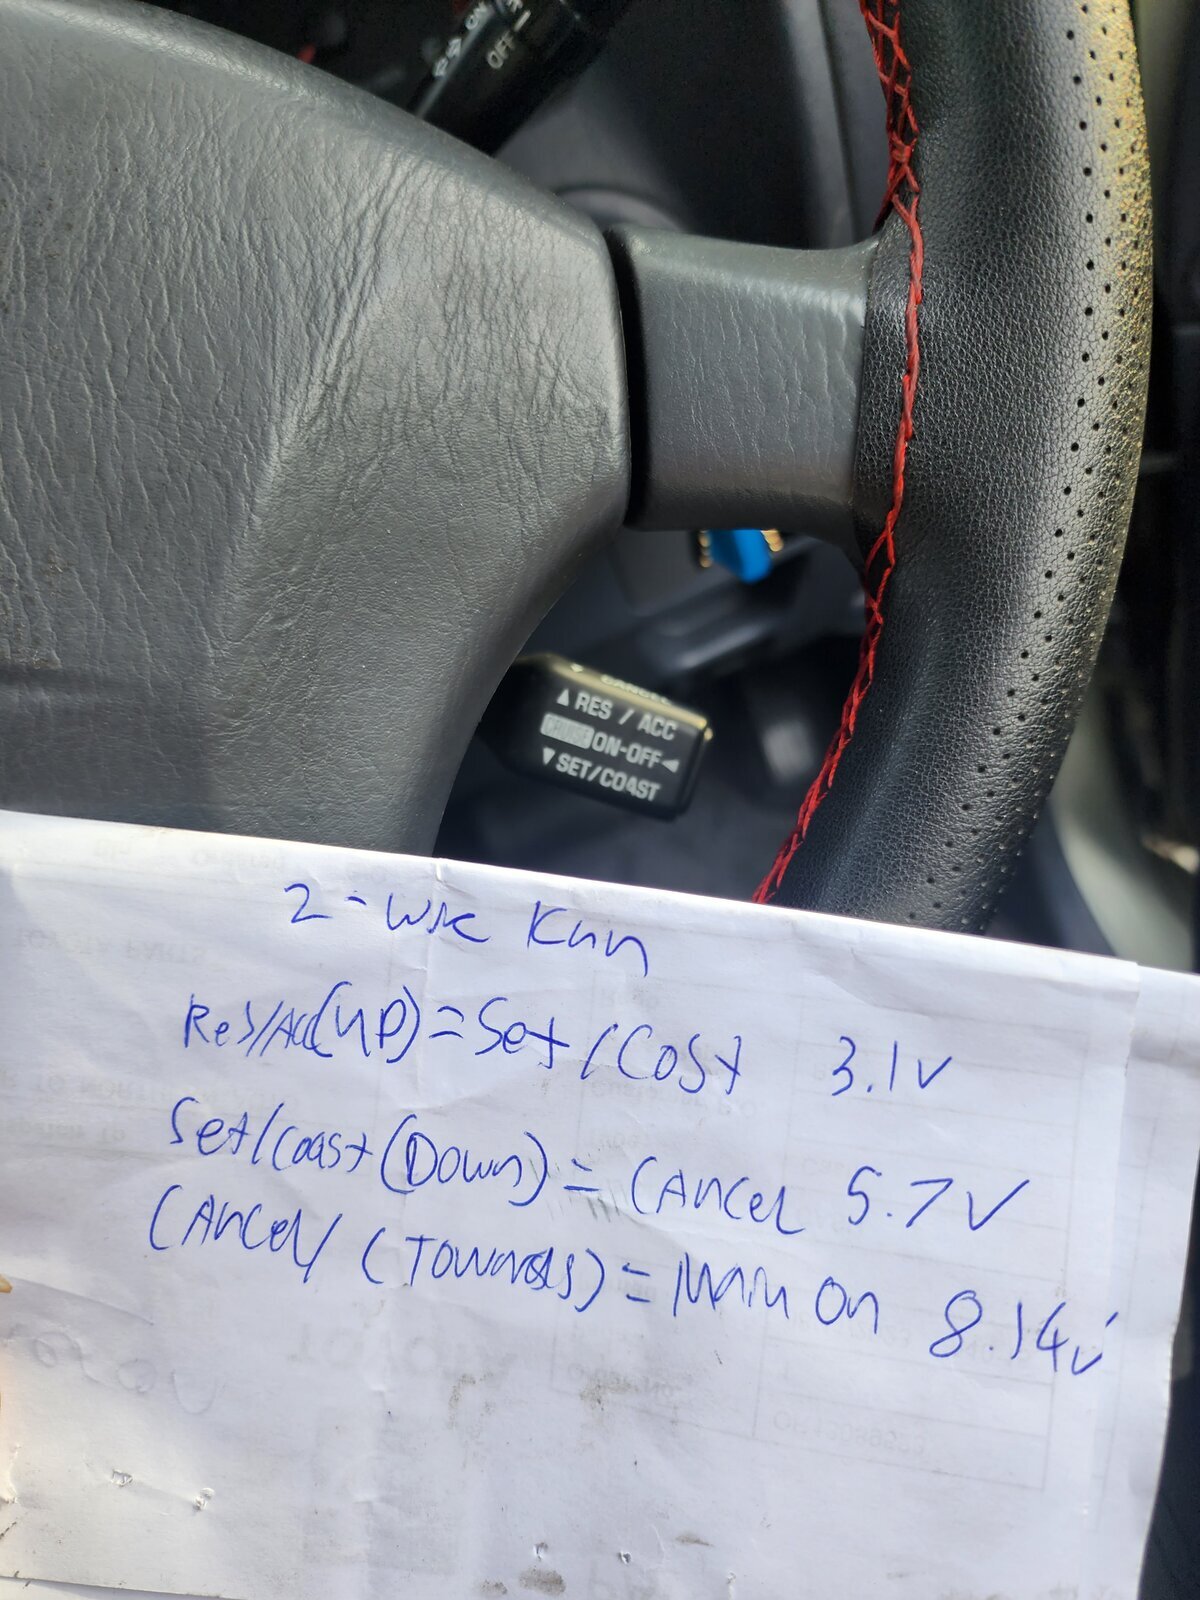 ON
OFF
CANCEL
▲ RES / ACC
CRUISE ON-OFF ◄
▼ SET/COAST
2-wire
Res/Acc(up) = Set / Cost 3.1v
Set/Coast (Down) = Cancel 5.7v
Cancel/ (Towards) = Main On 8.14v